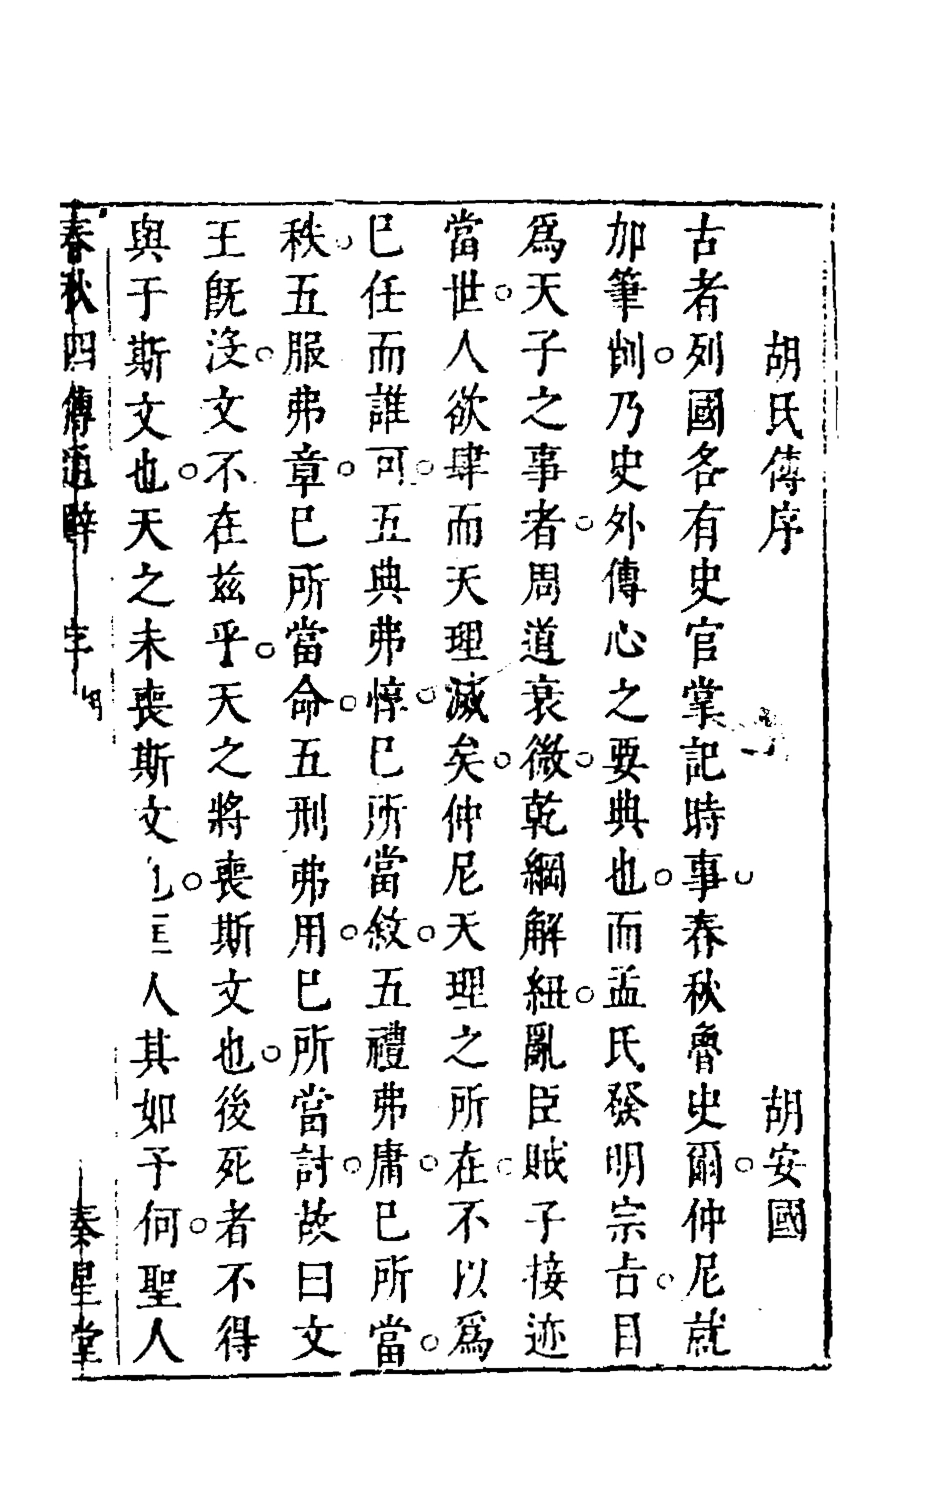 胡氏傳序　胡安國
古者列國各有史官掌記時事。春秋魯史爾。仲尼就
加筆削。乃史外傳心之要典也。而孟氏發明宗旨。目
爲天子之事者。周道衰微。乾綱解紐。亂臣賊子接迹
當世。人欲肆而天理滅矣。仲尼天理之所在。不以爲
已任而誰可。五典弗惇。已所當敘。五禮弗庸。已所當。
秩。五服弗章。已所當命。五刑弗用。已所當討。故曰文
王旣沒。文不在兹乎。天之將喪斯文也。後死者不得
與于斯文也。天之未喪斯文也。匡人其如予何。聖人
春秋四傳　序　星堂